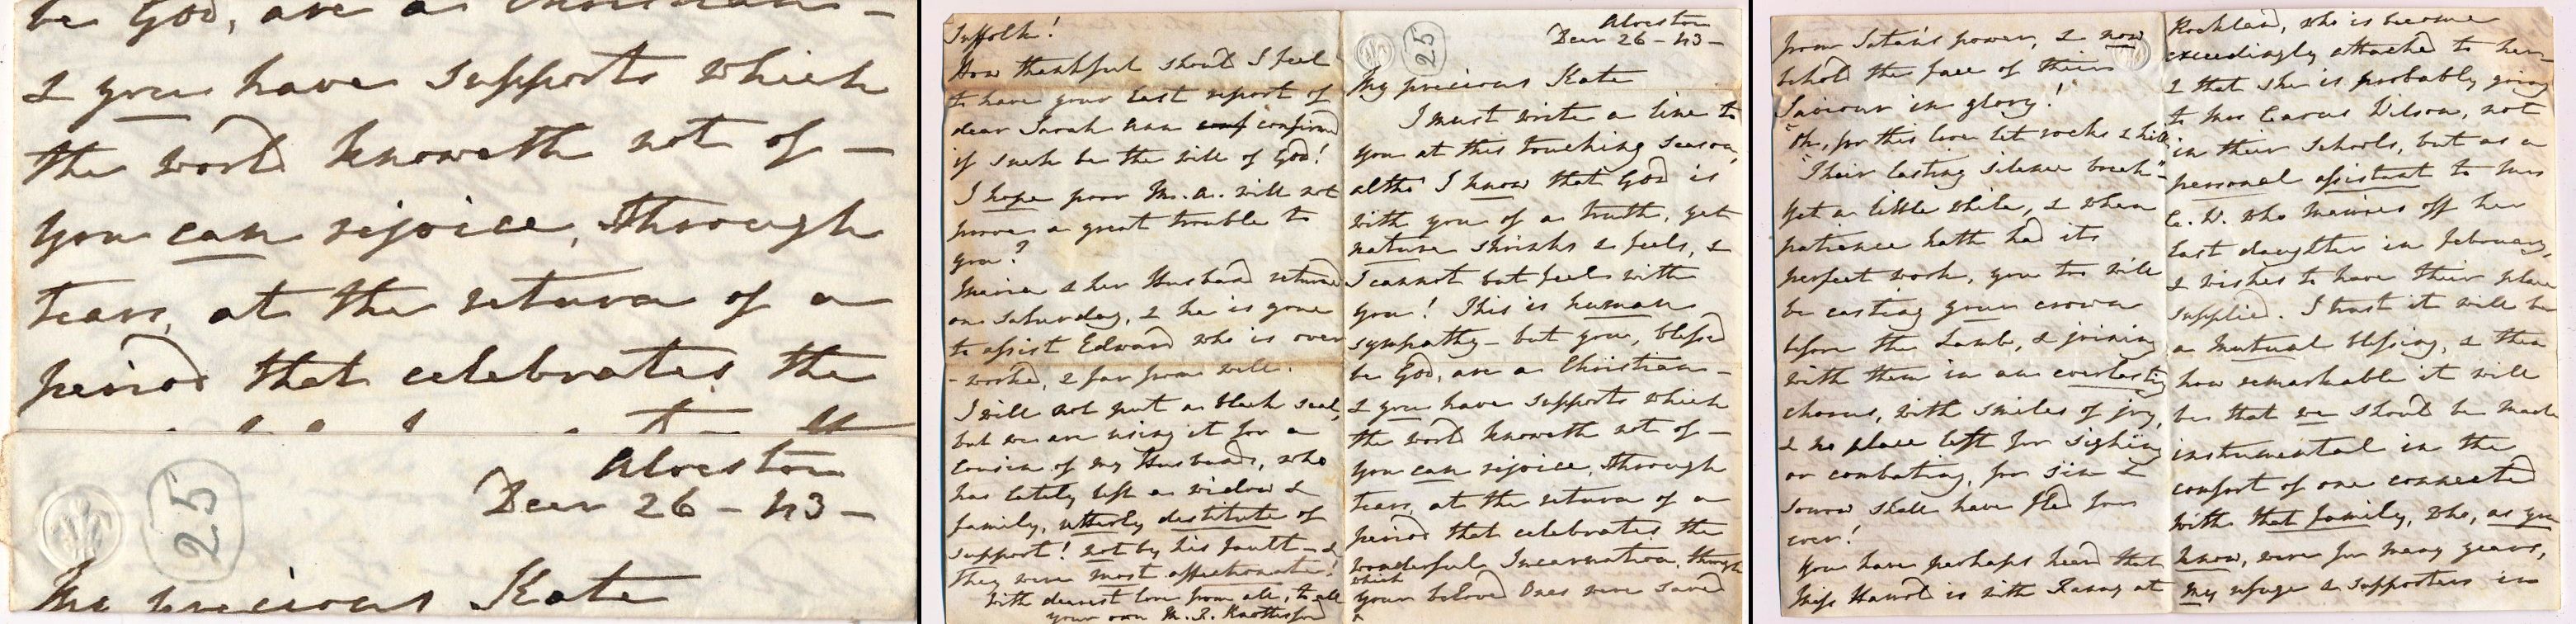 be God, are a Christian –
& you have supports which
the world knoweth not of –
you can rejoice, through
tears, at the return of a
period that celebrates the
Alveston
Decr 26 – 43 –
25
My precious Kate
Suffolk!
How thankful should I feel
to have your last report of
dear Sarah Ann conf confirmed
if such be the will of God!
I hope poor M. A. will not
prove a great trouble to
you?
Maria & her Husband returned
on Saturday, & he is gone
to assist Edward who is over
-worked, & far from well.
I will not put a black seal,
but we are using it for a
Cousin of my Husband's, who
has lately left a widow &
family, utterly destitute of
support! not by his fault – &
they were most affectionate!
With dearest love from all, to all
your own M. I.
Alveston
Decr 26 – 43 –
25
My precious Kate
I must write a line to
you at this touching season,
altho' I know that God is
with you of a truth, yet
nature shrinks & feels, &
I cannot but feel with
you! This is human
sympathy – but you, blessed
be God, are a Christian –
& you have supports which
the world knoweth not of –
you can rejoice, through
tears, at the return of a
period that celebrates the
wonderful Incarnation, through
which
your beloved Ones were saved
from Satan's power, & now
behold the face of their
Saviour in glory!
"Oh, for this love let rocks & hills
"Their lasting silence break" –
Yet a little while, & when
patience hath had its
perfect work, you too will
be casting your crown
before the Lamb, & joining
with them in an everlasting
chorus, with smiles of joy,
& no place left for sighing
or combating, for sin &
sorrow shall have fled for
ever!
You have perhaps heard that
Miss is with Fanny at
Rockland, who is become
exceedingly attached to her
& that she is probably going
to Mrs Carus Wilson, not
in their Schools, but as a
personal assistant to Mrs
C. W. who marries off her
last daughter in February,
& wishes to have their place
supplied. I trust it will be
a mutual blessing, & then
how remarkable it will
be that we should be made
instrumental in the
comfort of one connected
with that family, who, as you
know, were for many years,
my refuge & supporters in